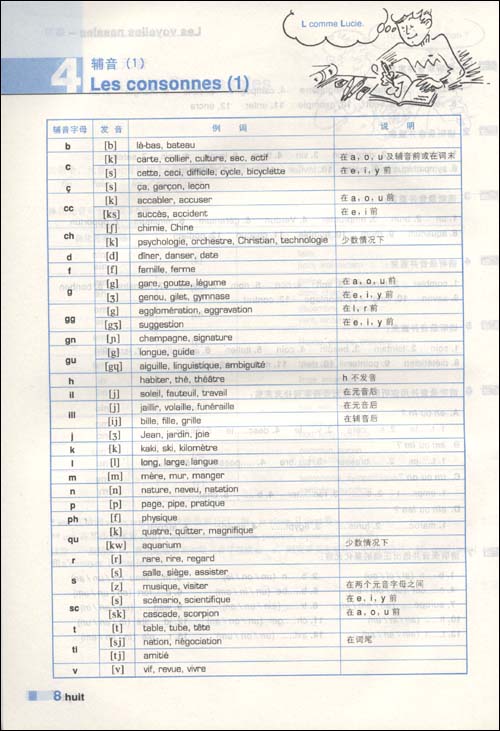 L comme Lucie.
4 辅音 (1)
Les consonnes (1)
辅音字母 发音 例词 说明
b [b] là-bas, bateau
c [k] carte, collier, culture, sac, actif 在 a, o, u 及辅音前或在词末
[s] cette, ceci, difficile, cycle, bicyclette 在 e, i, y 前
ç [s] ça, garçon, leçon
cc [k] accabler, accuser 在 a, o, u 前
[ks] succès, accident 在 e, i 前
ch [ʃ] chimie, Chine
[k] psychologie, orchestre, Christian, technologie 少数情况下
d [d] dîner, danser, date
f [f] famille, ferme
g [g] gare, goutte, légume 在 a, o, u 前
[ʒ] genou, gilet, gymnase 在 e, i, y 前
gg [g] agglomération, aggravation 在 l, r 前
[gʒ] suggestion 在 e, i, y 前
gn [ɲ] champagne, signature
gu [g] longue, guide
[gɥ] aiguille, linguistique, ambiguïté
h habiter, thé, théâtre h 不发音
il [j] soleil, fauteuil, travail 在元音后
ill [j] jaillir, volaille, funéraille 在元音后
[ij] bille, fille, grille 在辅音后
j [ʒ] Jean, jardin, joie
k [k] kaki, ski, kilomètre
l [l] long, large, langue
m [m] mère, mur, manger
n [n] nature, neveu, natation
p [p] page, pipe, pratique
ph [f] physique
qu [k] quatre, quitter, magnifique
[kw] aquarium 少数情况下
r [r] rare, rire, regard
s [s] salle, siège, assister
[z] musique, visiter 在两个元音字母之间
sc [s] scénario, scientifique 在 e, i, y 前
[sk] cascade, scorpion 在 a, o, u 前
t [t] table, tube, tête
ti [sj] nation, négociation 在词尾
[tj] amitié
v [v] vif, revue, vivre
8 huit